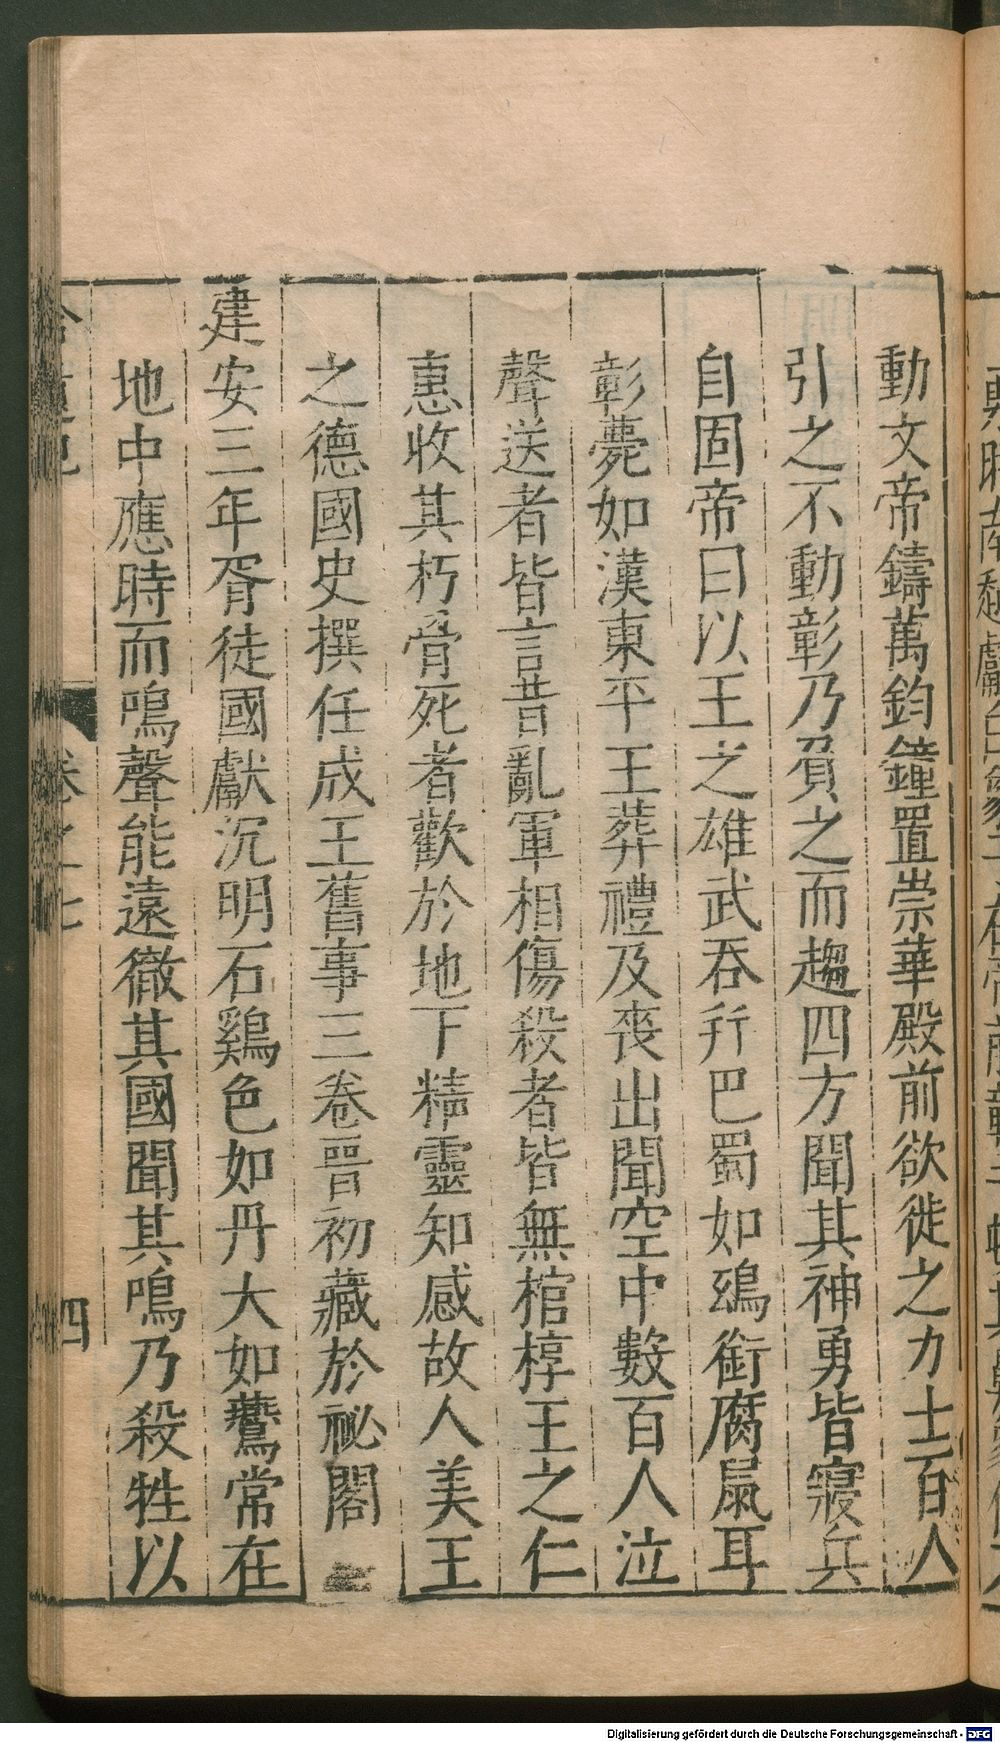 動文帝鑄萬鈞鐘置崇華殿前欲徙之力士百人
引之不動彰乃負之而趨四方聞其神勇皆寢兵
自固帝曰以王之雄武吞幷巴蜀如鴟銜腐鼠耳
彰薨如漢東平王葬禮及喪出聞空中數百人泣
聲送者皆言昔亂軍相傷殺者皆無棺椁王之仁
惠收其朽骨死者歡於地下精靈知感故人美王
之德國史撰任成王舊事三卷晉初藏於祕閣
建安三年胥徒國獻沉明石鷄色如丹大如鷰常在
地中應時而鳴聲能遠徹其國聞其鳴乃殺牲以
卷之七
四
Digitalisierung gefördert durch die Deutsche Forschungsgemeinschaft - DFG